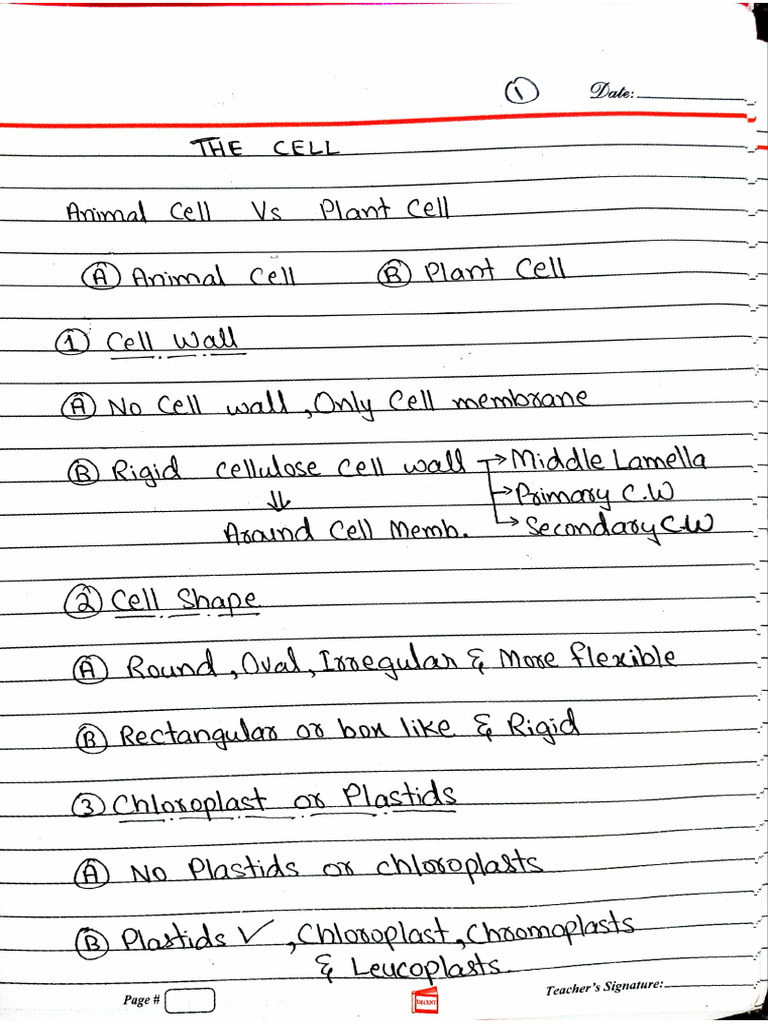 ① Date:
THE CELL
Animal Cell Vs Plant Cell
Ⓐ Animal Cell Ⓑ Plant Cell
① Cell Wall
Ⓐ No Cell wall, Only Cell membrane
Ⓑ Rigid Cellulose Cell wall → Middle Lamella
⇓ → Primary C.W
Around Cell Memb. → Secondary C.W
② Cell Shape
Ⓐ Round, Oval, Irregular & More flexible
Ⓑ Rectangular or box like & Rigid
③ Chloroplast or Plastids
Ⓐ No Plastids or chloroplasts
Ⓑ Plastids ✓, Chloroplast, Chromoplasts
& Leucoplasts.
Page # DECENT Teacher's Signature: